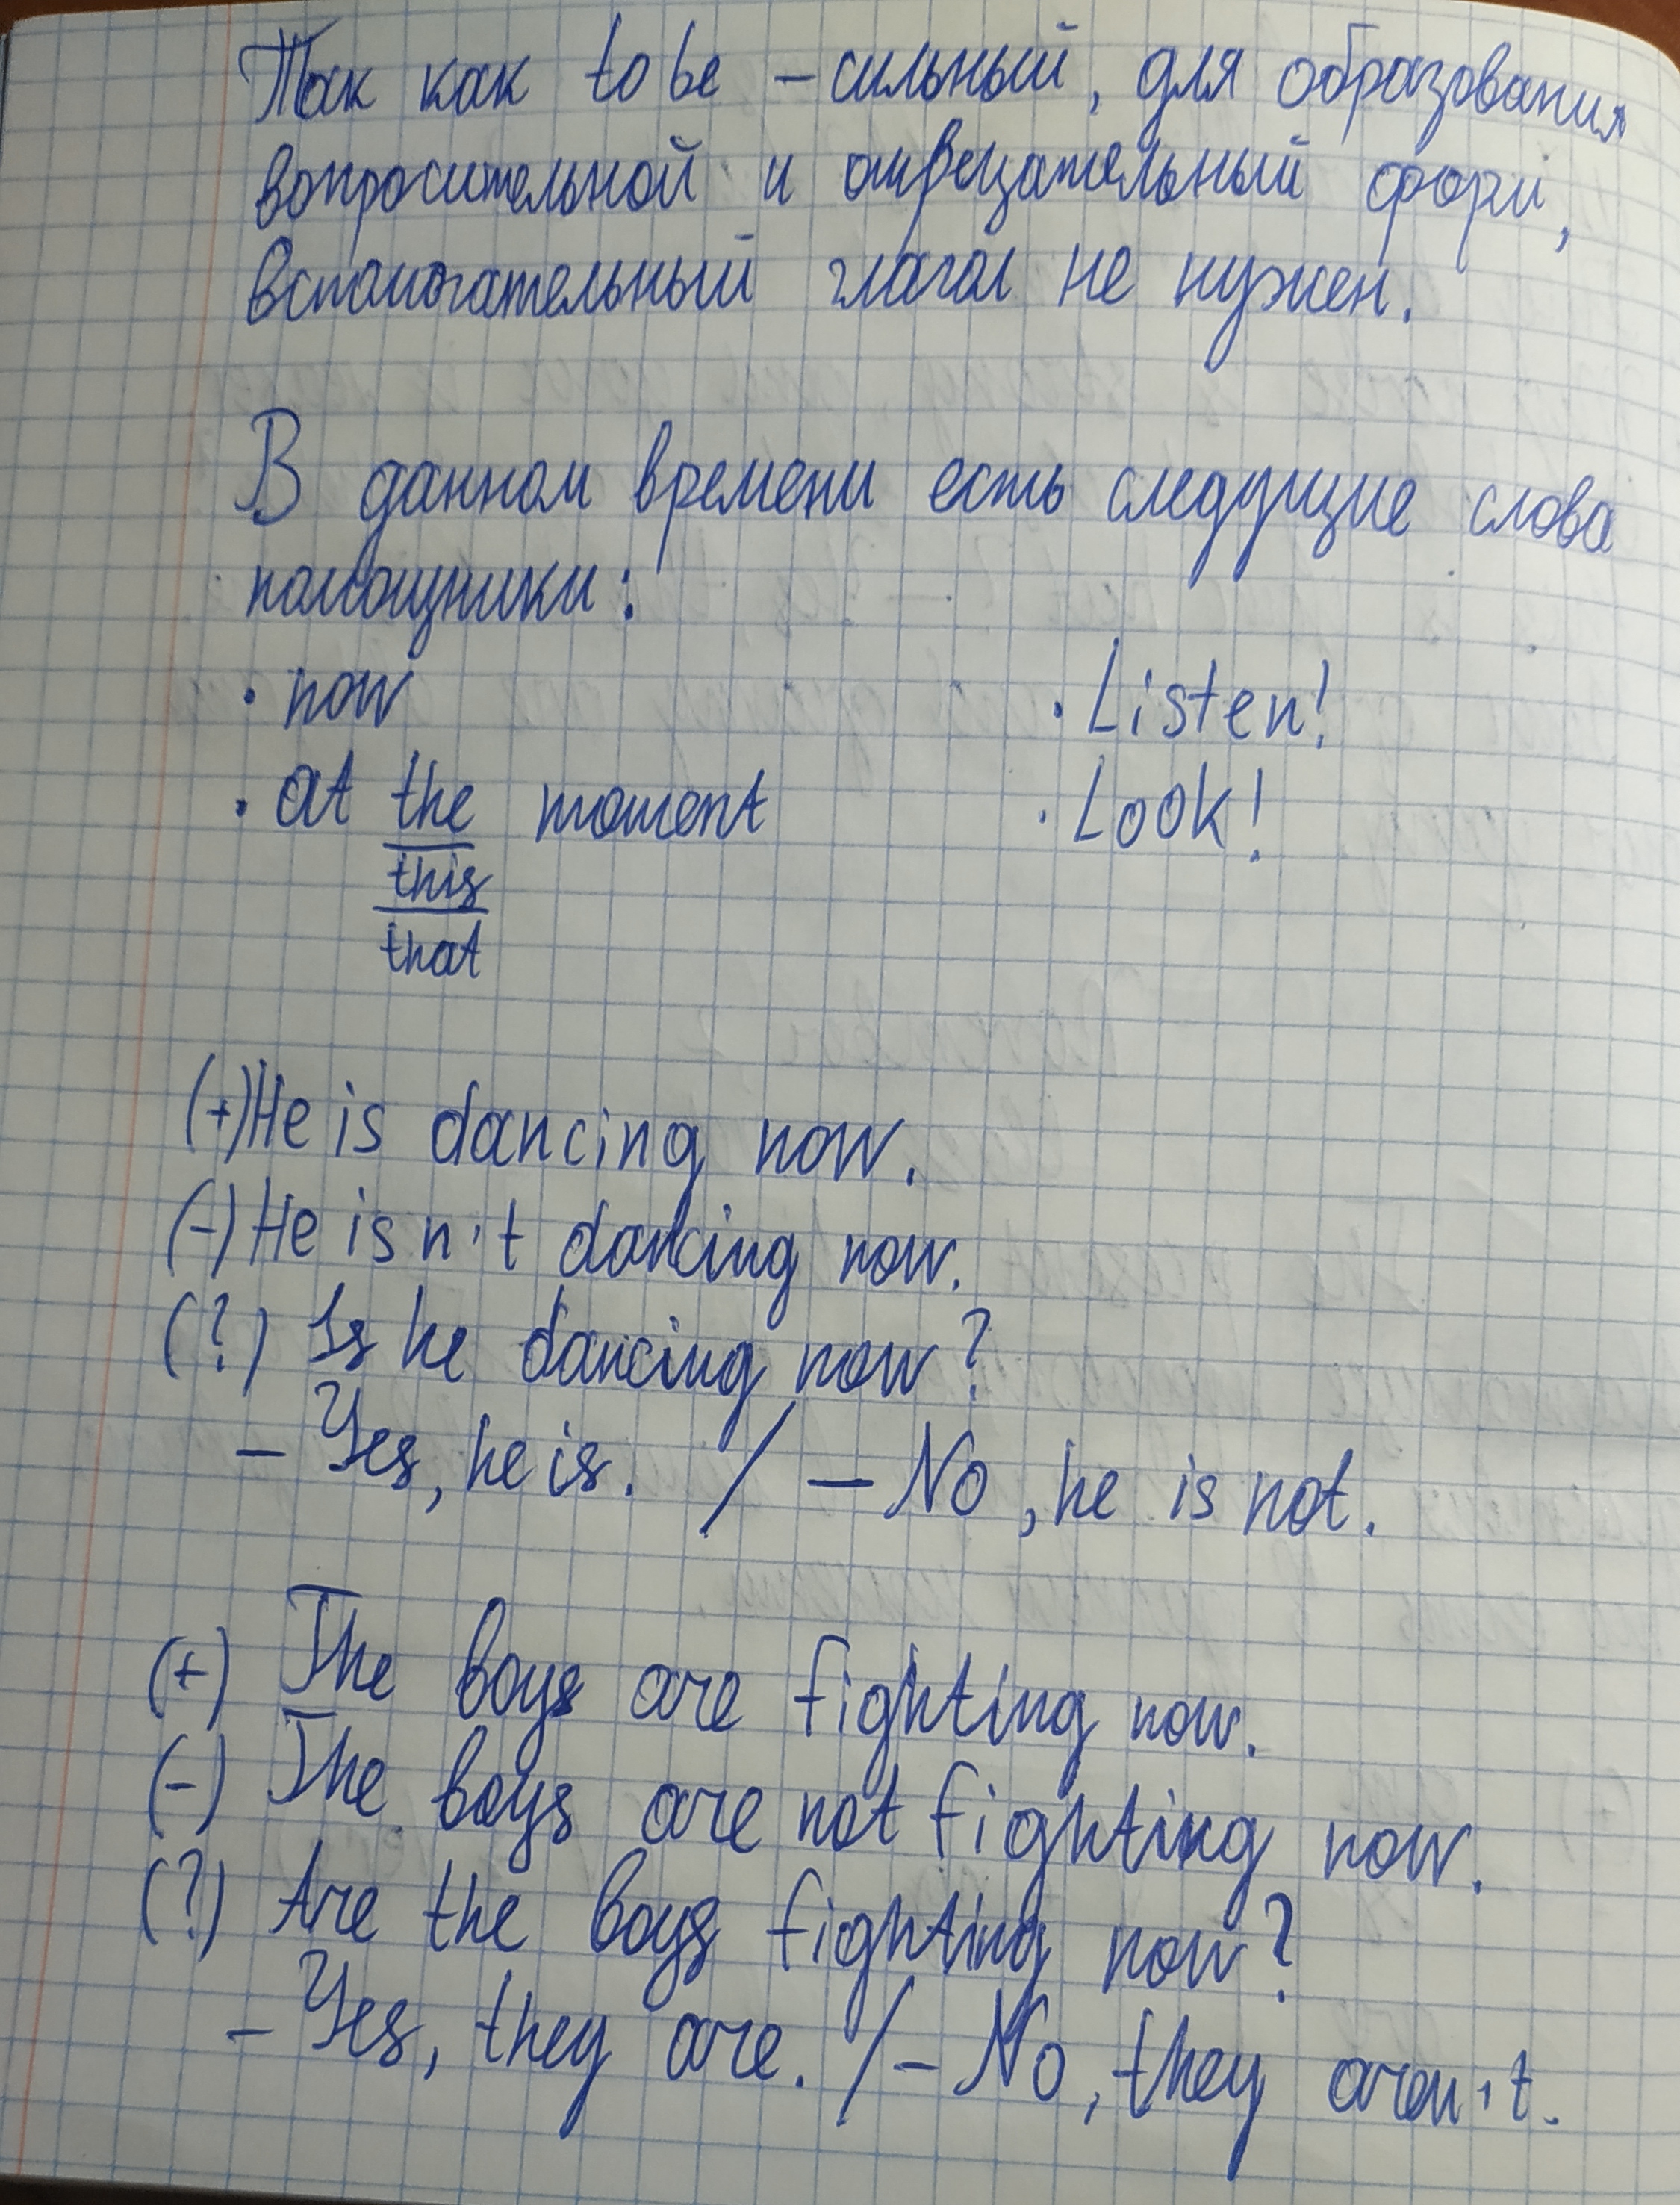 Так как to be – сильный, для образования
вопросительной и отрецательный форм,
вспомогательный глагол не нужен.
В данном времени есть следущие слова
помощники:
• now • Listen!
• at the moment • Look!
this
that
(+) He is dancing now.
(-) He isn't dancing now.
(?) Is he dancing now?
– Yes, he is. / – No, he is not.
(+) The boys are fighting now.
(-) The boys are not fighting now.
(?) Are the boys fighting now?
– Yes, they are. / – No, they aren't.